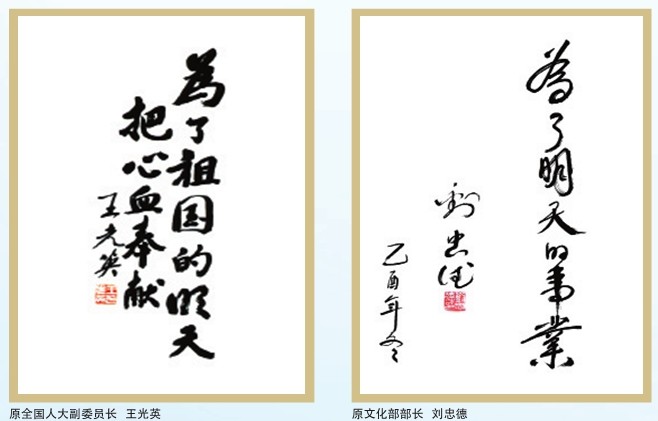 為了祖国的明天
把心血奉献
王光英
原全国人大副委员长 王光英
為了明天的事業
劉忠德
乙酉年冬
原文化部部长 刘忠德